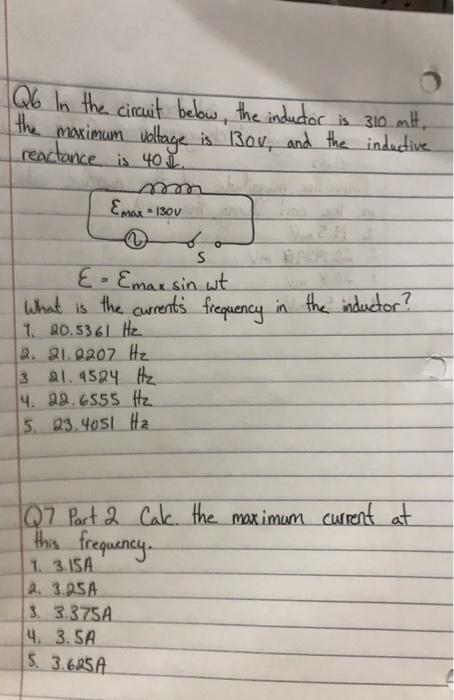 Q6 In the circuit below, the inductor is 310 mH,
the maximum voltage is 130V, and the inductive
reactance is 40 Ω.
Emax = 130V
S
Ɛ = Ɛmax sin wt
What is the current's frequency in the inductor?
1. 20.5361 Hz
2. 21.2207 Hz
3 21.9524 Hz
4. 22.6555 Hz
5. 23.4051 Hz
Q7 Part 2 Calc. the maximum current at
this frequency.
1. 3.15A
2. 3.25A
3. 3.375A
4. 3.5A
5. 3.625A